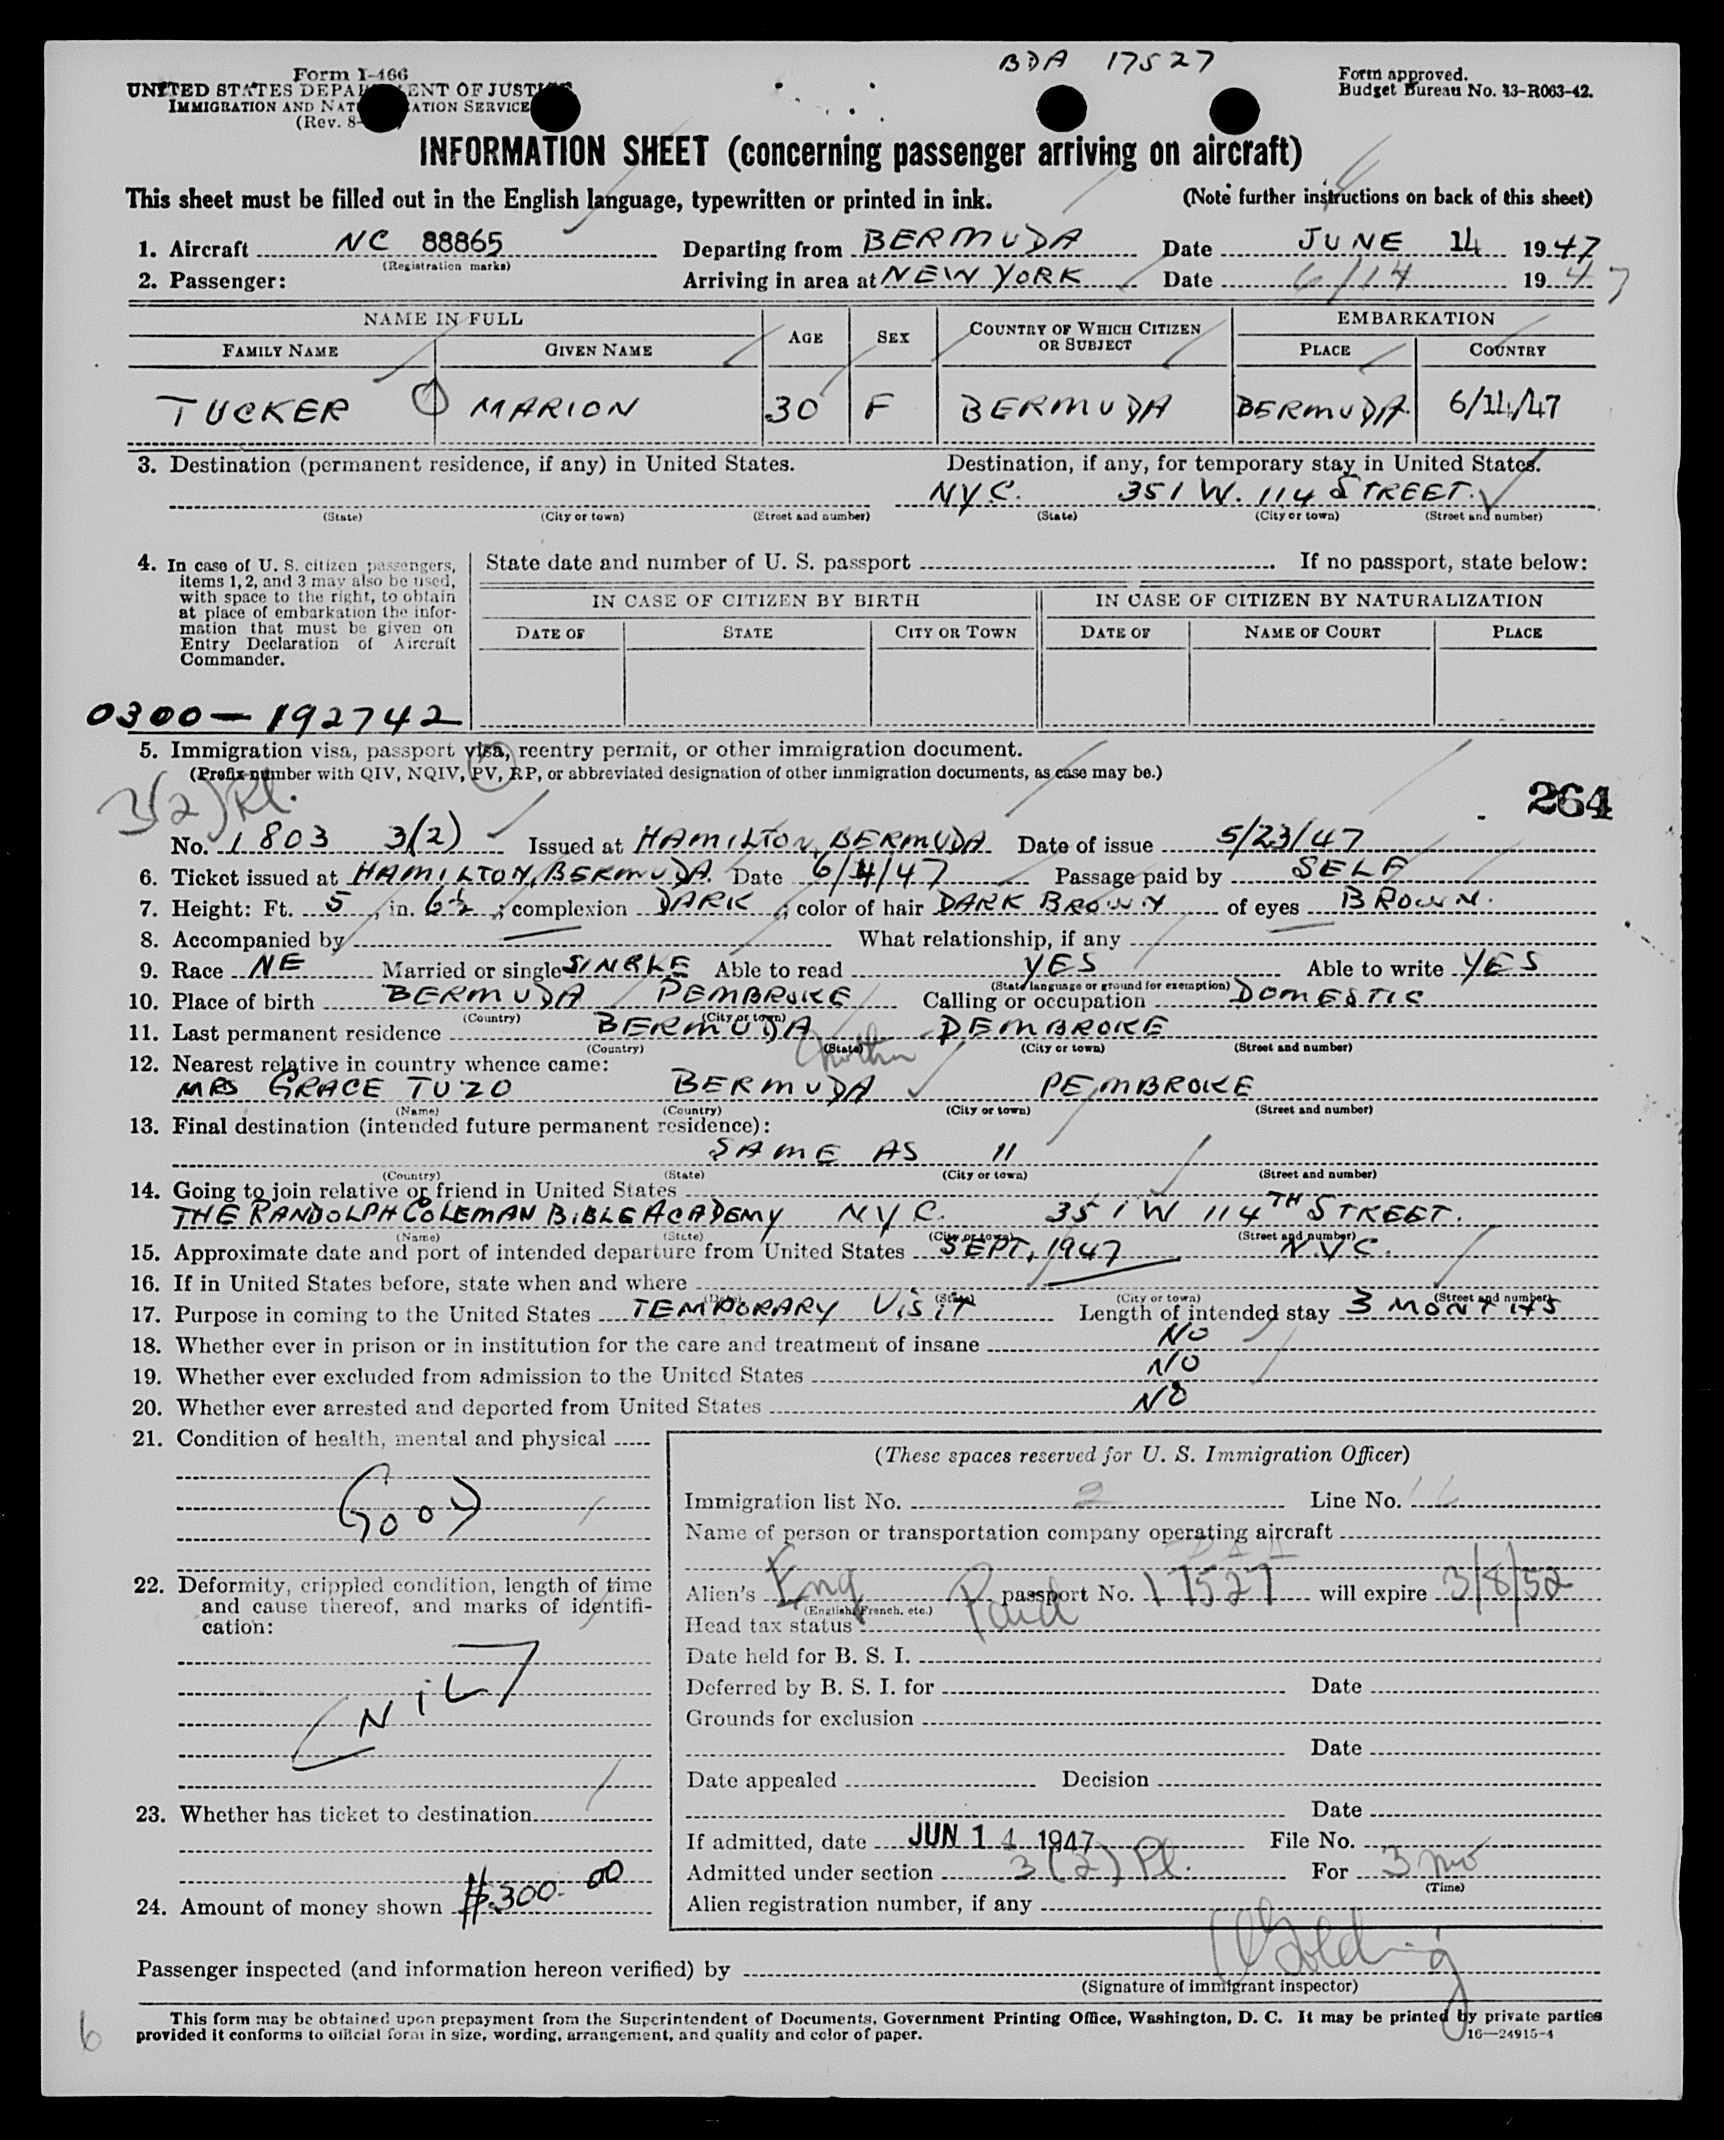 BDA 17527
Form I-466
UNITED STATES DEPARTMENT OF JUSTICE
IMMIGRATION AND NATURALIZATION SERVICE
(Rev. 8-
Form approved.
Budget Bureau No. 43-R063-42.
INFORMATION SHEET (concerning passenger arriving on aircraft)
This sheet must be filled out in the English language, typewritten or printed in ink. (Note further instructions on back of this sheet)
1. Aircraft NC 88865 Departing from BERMUDA Date JUNE 14 1947
(Registration marks)
2. Passenger: Arriving in area at NEW YORK Date 6/14 1947
NAME IN FULL AGE SEX COUNTRY OF WHICH CITIZEN OR SUBJECT EMBARKATION
FAMILY NAME GIVEN NAME PLACE COUNTRY
TUCKER MARION 30 F BERMUDA BERMUDA 6/14/47
3. Destination (permanent residence, if any) in United States. Destination, if any, for temporary stay in United States.
NYC. 351 W. 114 STREET.
(State) (City or town) (Street and number) (State) (City or town) (Street and number)
4. In case of U. S. citizen passengers, items 1, 2, and 3 may also be used, with space to the right, to obtain at place of embarkation the information that must be given on Entry Declaration of Aircraft Commander.
State date and number of U. S. passport If no passport, state below:
IN CASE OF CITIZEN BY BIRTH IN CASE OF CITIZEN BY NATURALIZATION
DATE OF STATE CITY OR TOWN DATE OF NAME OF COURT PLACE
0300-192742
5. Immigration visa, passport visa, reentry permit, or other immigration document.
(Prefix number with QIV, NQIV, PV, RP, or abbreviated designation of other immigration documents, as case may be.)
3(2) Pl.
264
No. 1803 3(2) Issued at HAMILTON, BERMUDA Date of issue 5/23/47
6. Ticket issued at HAMILTON, BERMUDA. Date 6/4/47 Passage paid by SELF
7. Height: Ft. 5, in. 6½; complexion DARK; color of hair DARK BROWN of eyes BROWN.
8. Accompanied by — What relationship, if any —
9. Race NE Married or single SINGLE Able to read YES Able to write YES
(State language or ground for exemption)
10. Place of birth BERMUDA PEMBROKE Calling or occupation DOMESTIC
(Country) (City or town)
11. Last permanent residence BERMUDA PEMBROKE
(Country) (State) (City or town) (Street and number)
12. Nearest relative in country whence came:
MRS GRACE TUZO BERMUDA PEMBROKE
(Name) (Country) (City or town) (Street and number)
13. Final destination (intended future permanent residence):
SAME AS 11
(Country) (State) (City or town) (Street and number)
14. Going to join relative or friend in United States
THE RANDOLPH COLEMAN BIBLE ACADEMY NYC. 351 W 114TH STREET.
(Name) (State) (City or town) (Street and number)
15. Approximate date and port of intended departure from United States SEPT, 1947 N.Y.C.
16. If in United States before, state when and where —
(Date) (State) (City or town) (Street and number)
17. Purpose in coming to the United States TEMPORARY VISIT Length of intended stay 3 MONTHS
18. Whether ever in prison or in institution for the care and treatment of insane NO
19. Whether ever excluded from admission to the United States NO
20. Whether ever arrested and deported from United States NO
21. Condition of health, mental and physical
GOOD
22. Deformity, crippled condition, length of time and cause thereof, and marks of identification:
NIL
23. Whether has ticket to destination
24. Amount of money shown $300.00
(These spaces reserved for U. S. Immigration Officer)
Immigration list No. 2 Line No.
Name of person or transportation company operating aircraft
Alien's Eng passport No. 17527 will expire 3/8/52
(English, French, etc.)
Head tax status Paid
Date held for B. S. I.
Deferred by B. S. I. for Date
Grounds for exclusion
Date
Date appealed Decision
Date
If admitted, date JUN 14 1947 File No.
Admitted under section 3(2) Pl. For 3 mo
(Time)
Alien registration number, if any
Passenger inspected (and information hereon verified) by Golding
(Signature of immigrant inspector)
This form may be obtained upon prepayment from the Superintendent of Documents, Government Printing Office, Washington, D. C. It may be printed by private parties
provided it conforms to official form in size, wording, arrangement, and quality and color of paper.
16—24915-4
6